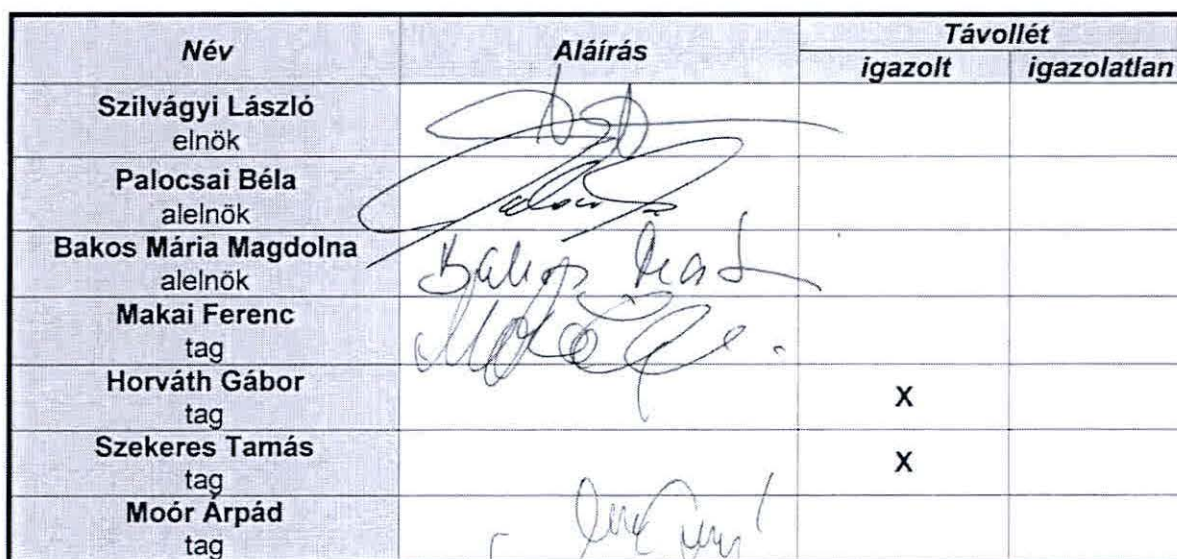 Név Aláírás Távollét
igazolt igazolatlan
Szilvágyi László
elnök
Palocsai Béla
alelnök
Bakos Mária Magdolna
alelnök
Bakos
Makai Ferenc
tag
Horváth Gábor X
tag
Szekeres Tamás X
tag
Moór Árpád
tag